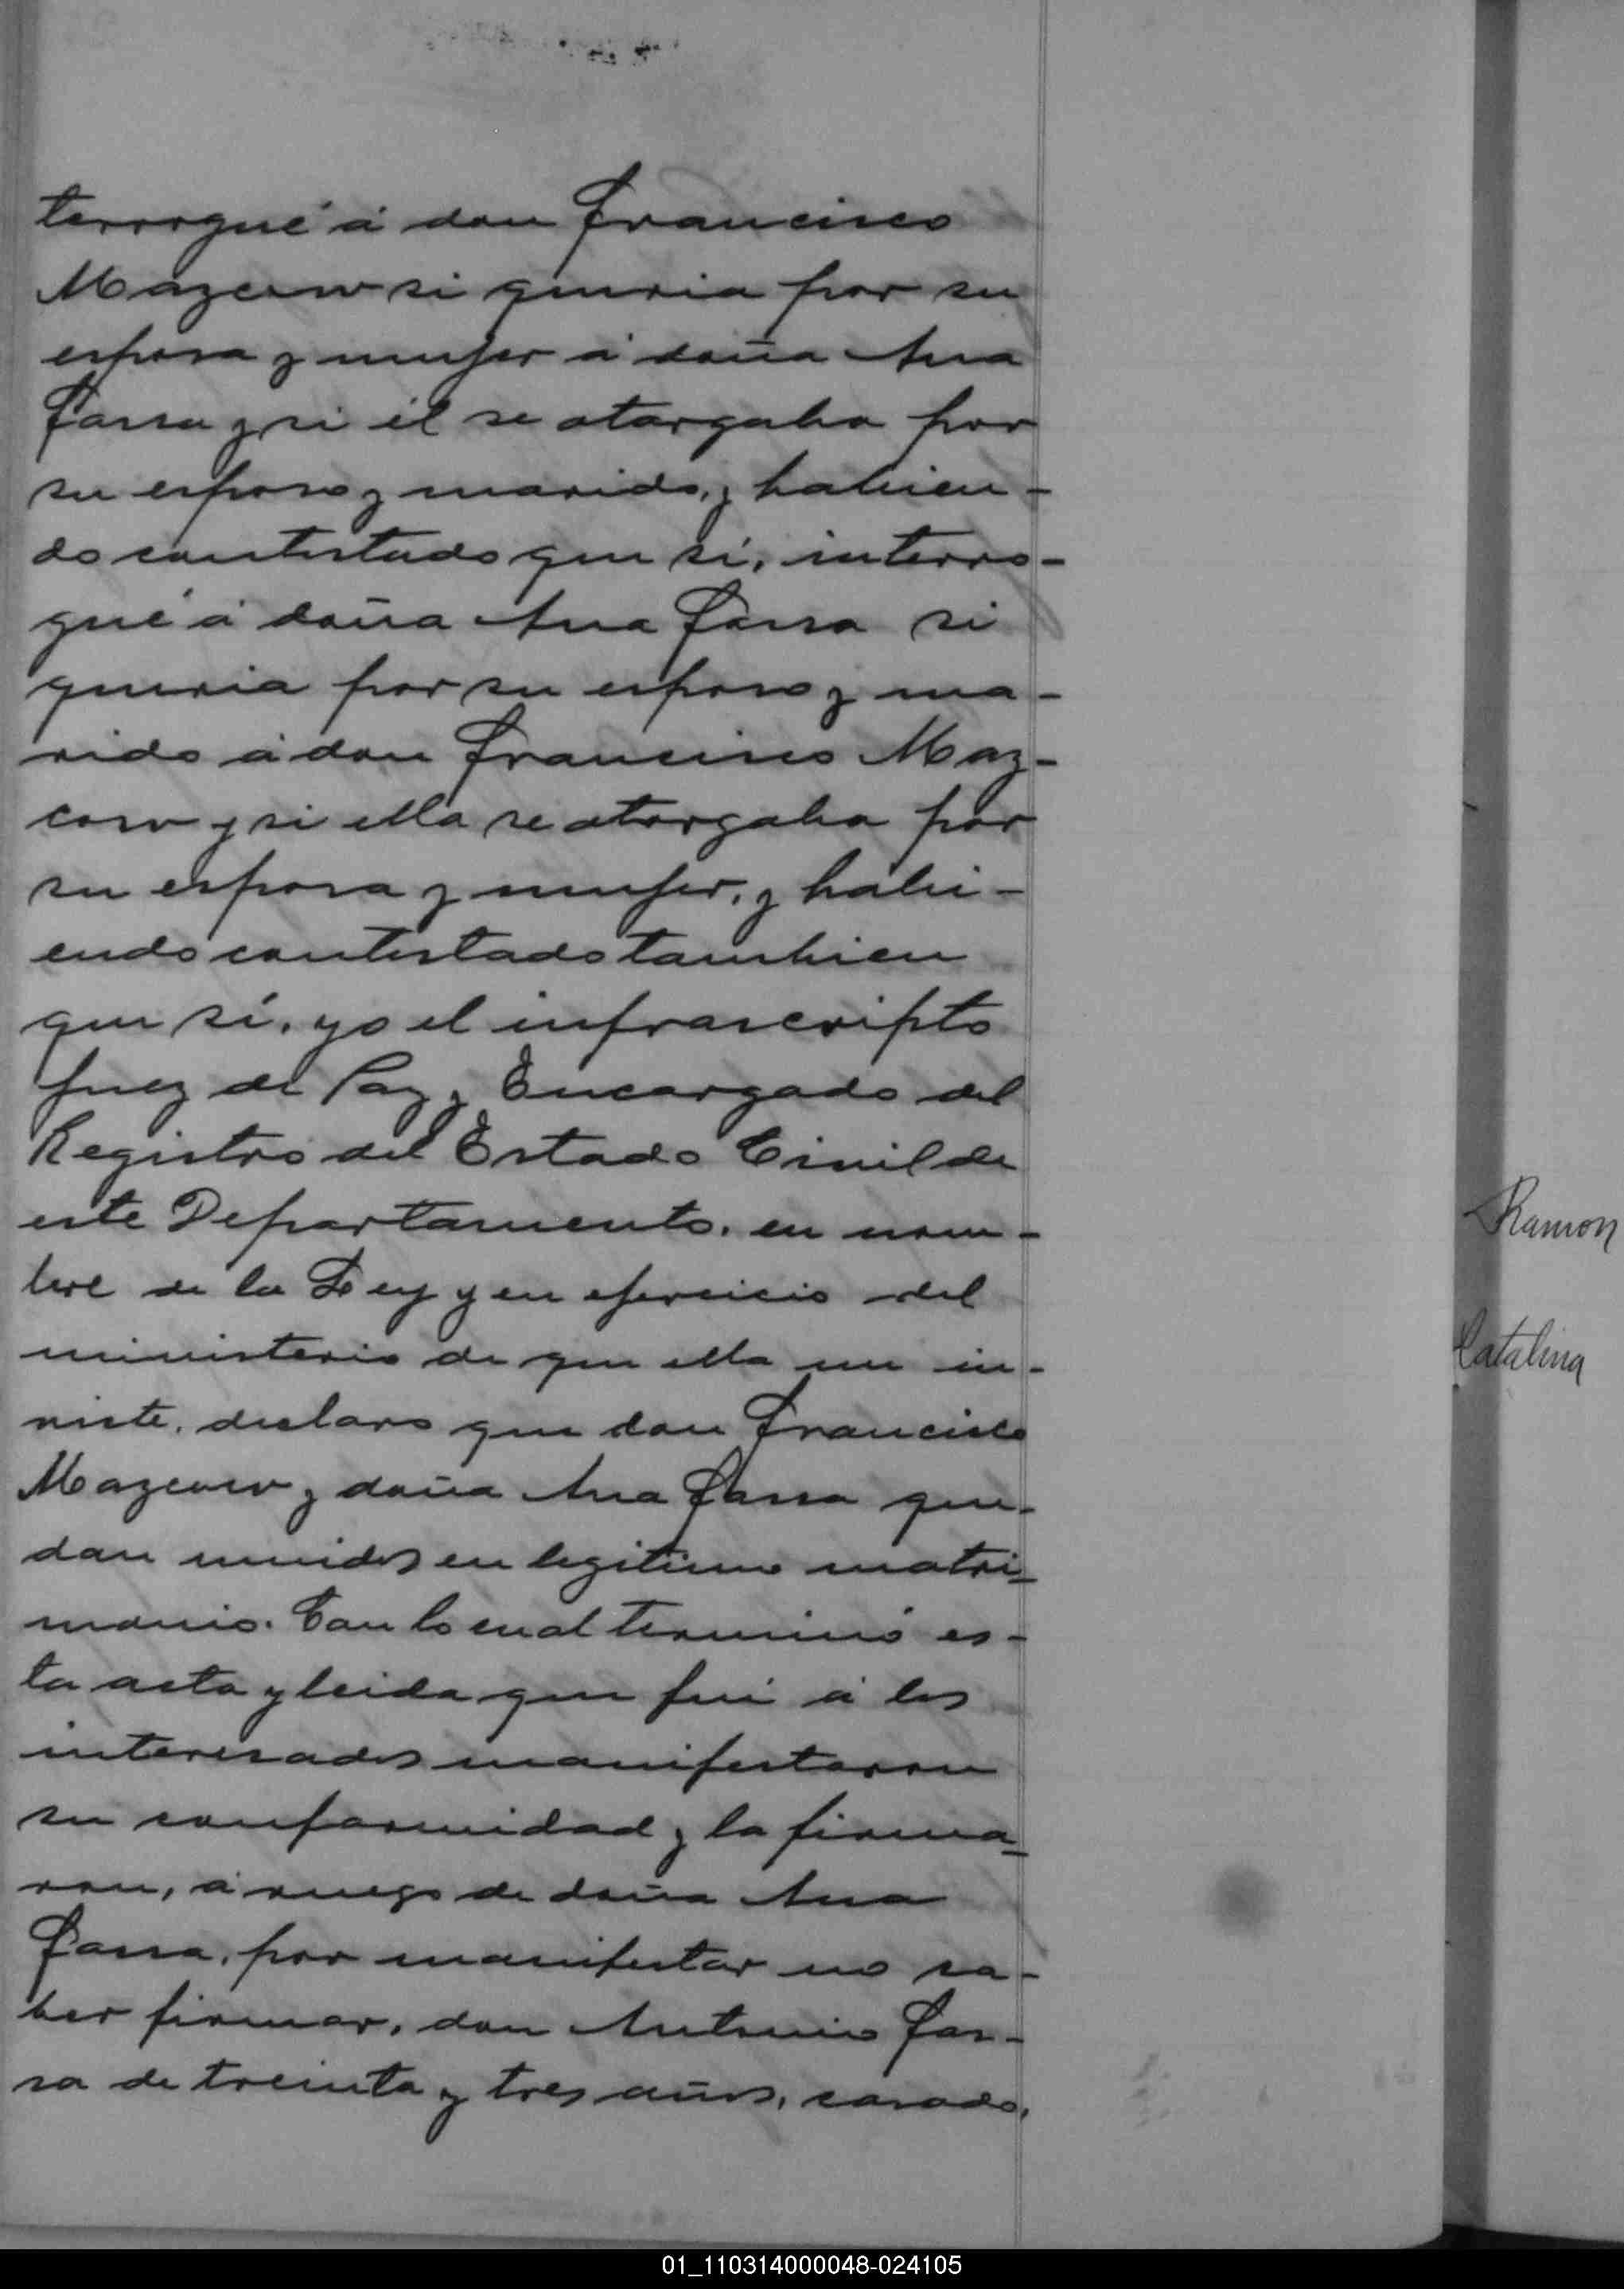 terrogué á don Francisco
Mazcoso si queria por su
esposa y mujer á doña Ana
Fassa y si él se otorgaba por
su esposo y marido, y habien-
do contestado que sí, interro-
gué á doña Ana Fassa si
queria por su esposo y ma-
rido á don Francisco Maz-
coso y si ella se otorgaba por
su esposa y mujer, y habi-
endo contestado tambien
que sí, yo el infrascripto
Juez de Paz y Encargado del
Registro del Estado Civil de
este Departamento, en nom-
bre de la Ley y en ejercicio del
ministerio de que ella me in-
viste, declaro que don Francisco
Mazcoso y doña Ana Fassa que-
dan unidos en legitimo matri-
monio. Con lo cual terminó es-
ta acta y leida que fué á los
interesados manifestaron
su conformidad y la firma-
ron, á ruego de doña Ana
Fassa, por manifestar no sa-
ber firmar, don Antonio Fas-
sa de treinta y tres años, casado,
Ramon
Catalina
01_110314000048-024105